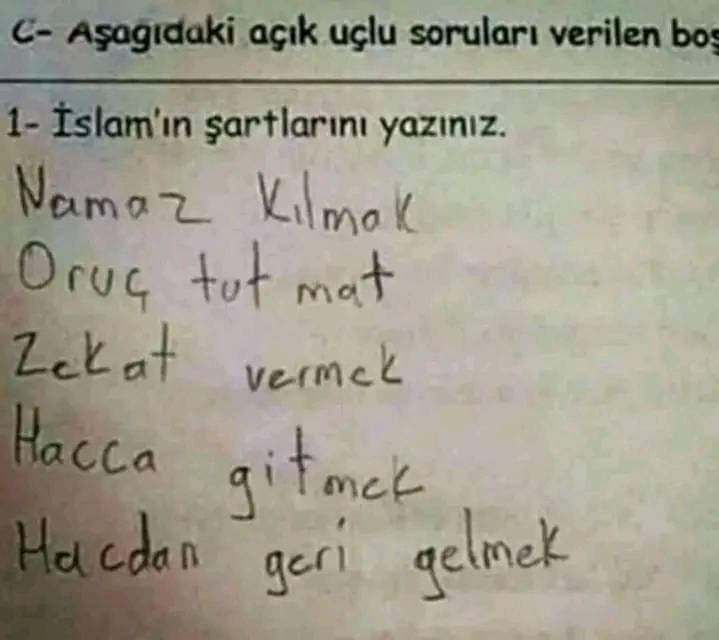 C- Aşagıdaki açık uçlu soruları verilen boş
1- İslam'ın şartlarını yazınız.
Namaz Kılmak
Oruç tutmat
Zekat vermek
Hacca gitmek
Hacdan geri gelmek